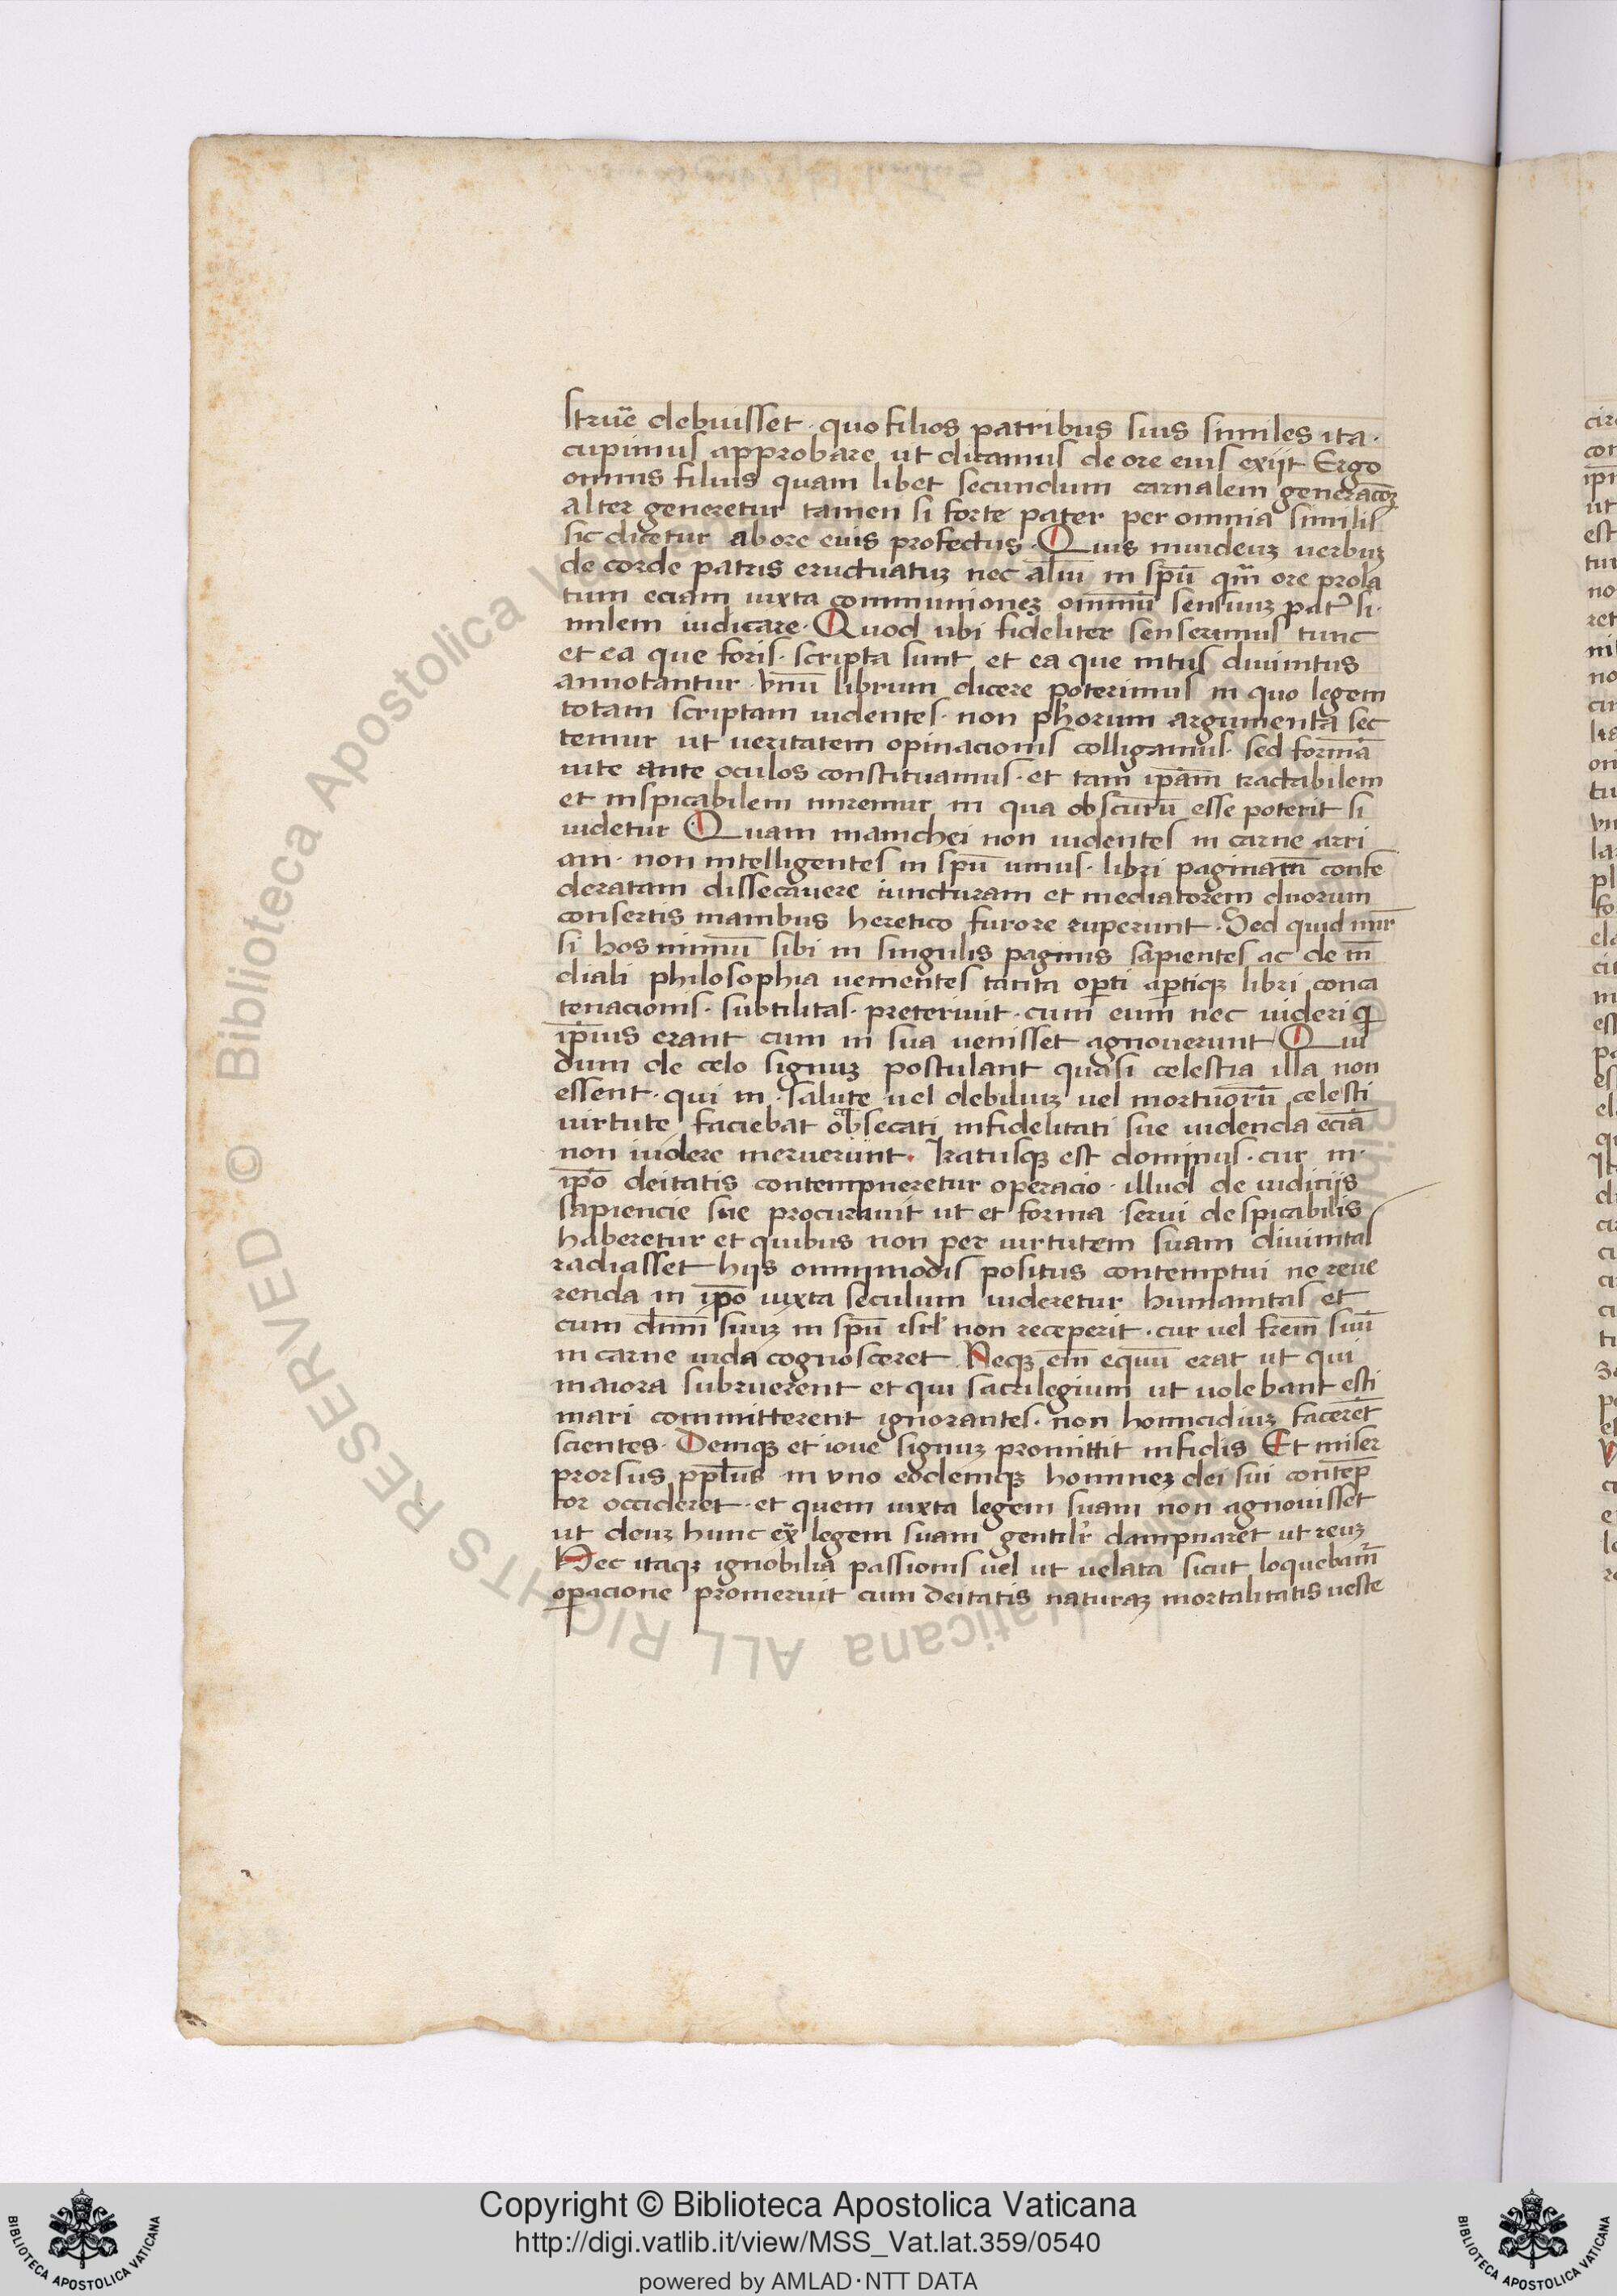 struē debuisset · quo filios patribus suis similes ita ·
cupimus approbare ut dicamus de ore eius exijt Ergo
omnis filius quam libet secundum carnalem generacōꝫ
alter generetur tamen si forte pater per omnia similis
sic dicetur ab ore euis profectus · Quis inuideuꝫ verbuꝫ
de corde patris eructuatuꝫ nec aliū in spū qm̄ ore prola
tum eciam iuxta communioneꝫ omniū sensuuꝫ patⁱ si ·
milem iudicare · Quod ubi fideliter senserimus tunc
et ea que foris · scripta sunt et ea que intus diuinitus
annotantur · vnū librum dicere poterimus in quo legem
totam scriptam uidentes · non ph̄orum argumenta sec
temur ut ueritatem opinacionis colligamus · sed formā
uite ante oculos constituamus · et tam ip̄am tractabilem
et inspicabilem miremur in qua obscurū esse poterit si
uidetur Quam manichei non uidentes in carne arri
ani · non intelligentes in spū unius · libri paginam confe
deratam dissecauere iuncturam et mediatorem duorum
consertis manibus heretico furore ruperunt · Sed quid mir̄
si hos nimiū sibi in singulis paginis sapientes ac de m̄
diali philosophia uementes tanta op̄ti ap̄tiqꝫ libri conca
tenacionis · subtilitas · preteriuit · cum eum nec uideri q̄
ip̄ius erant cum in sua uenisset agnouerunt Qui
dum de celo signuꝫ postulant quasi celestia illa non
essent · qui in · salute uel debiliuꝫ uel mortuorū celesti
uirtute faciebat obsecati infidelitati sue uidenda eciā
non uidere meruerunt · Iratusqꝫ est dominus · cur in ·
ip̄o deitatis contempneretur operacio · illud de iudicijs
sapiencie sue procurauit ut et forma serui despicabilis
haberetur et quibus non per uirtutem suam diuinitas
radiasset hijs omnimodis positus contemptui ne reue
renda in ip̄o iuxta seculum uideretur humanitas et
cum dn̄m suuꝫ in spū isrl̄ non receperit · cur uel frēm suū
in carne iuda cognosceret · Neqꝫ em̄ equū erat ut qui
maiora subruerent et qui sacrilegium ut uolebant esti
mari committerent ignorantes · non homicidiuꝫ facerēt
scientes · Deniqꝫ et ioue signuꝫ promittit infidis Et miser
prorsus pp̄lus in vno eodemqꝫ homineꝫ dei sui contēp
tor occideret · et quem iuxta legem suam non agnouisset
ut deuꝫ hunc ex̄ legem suam gentilr̄ dampnaret ut reuꝫ
Hec itaqꝫ ignobilia passionis uel ut uelata sicut loquebam̄
op̄acione promeruit cum deitatis naturaꝫ mortalitatis ueste
Copyright © Biblioteca Apostolica Vaticana
http://digi.vatlib.it/view/MSS_Vat.lat.359/0540
powered by AMLAD·NTT DATA